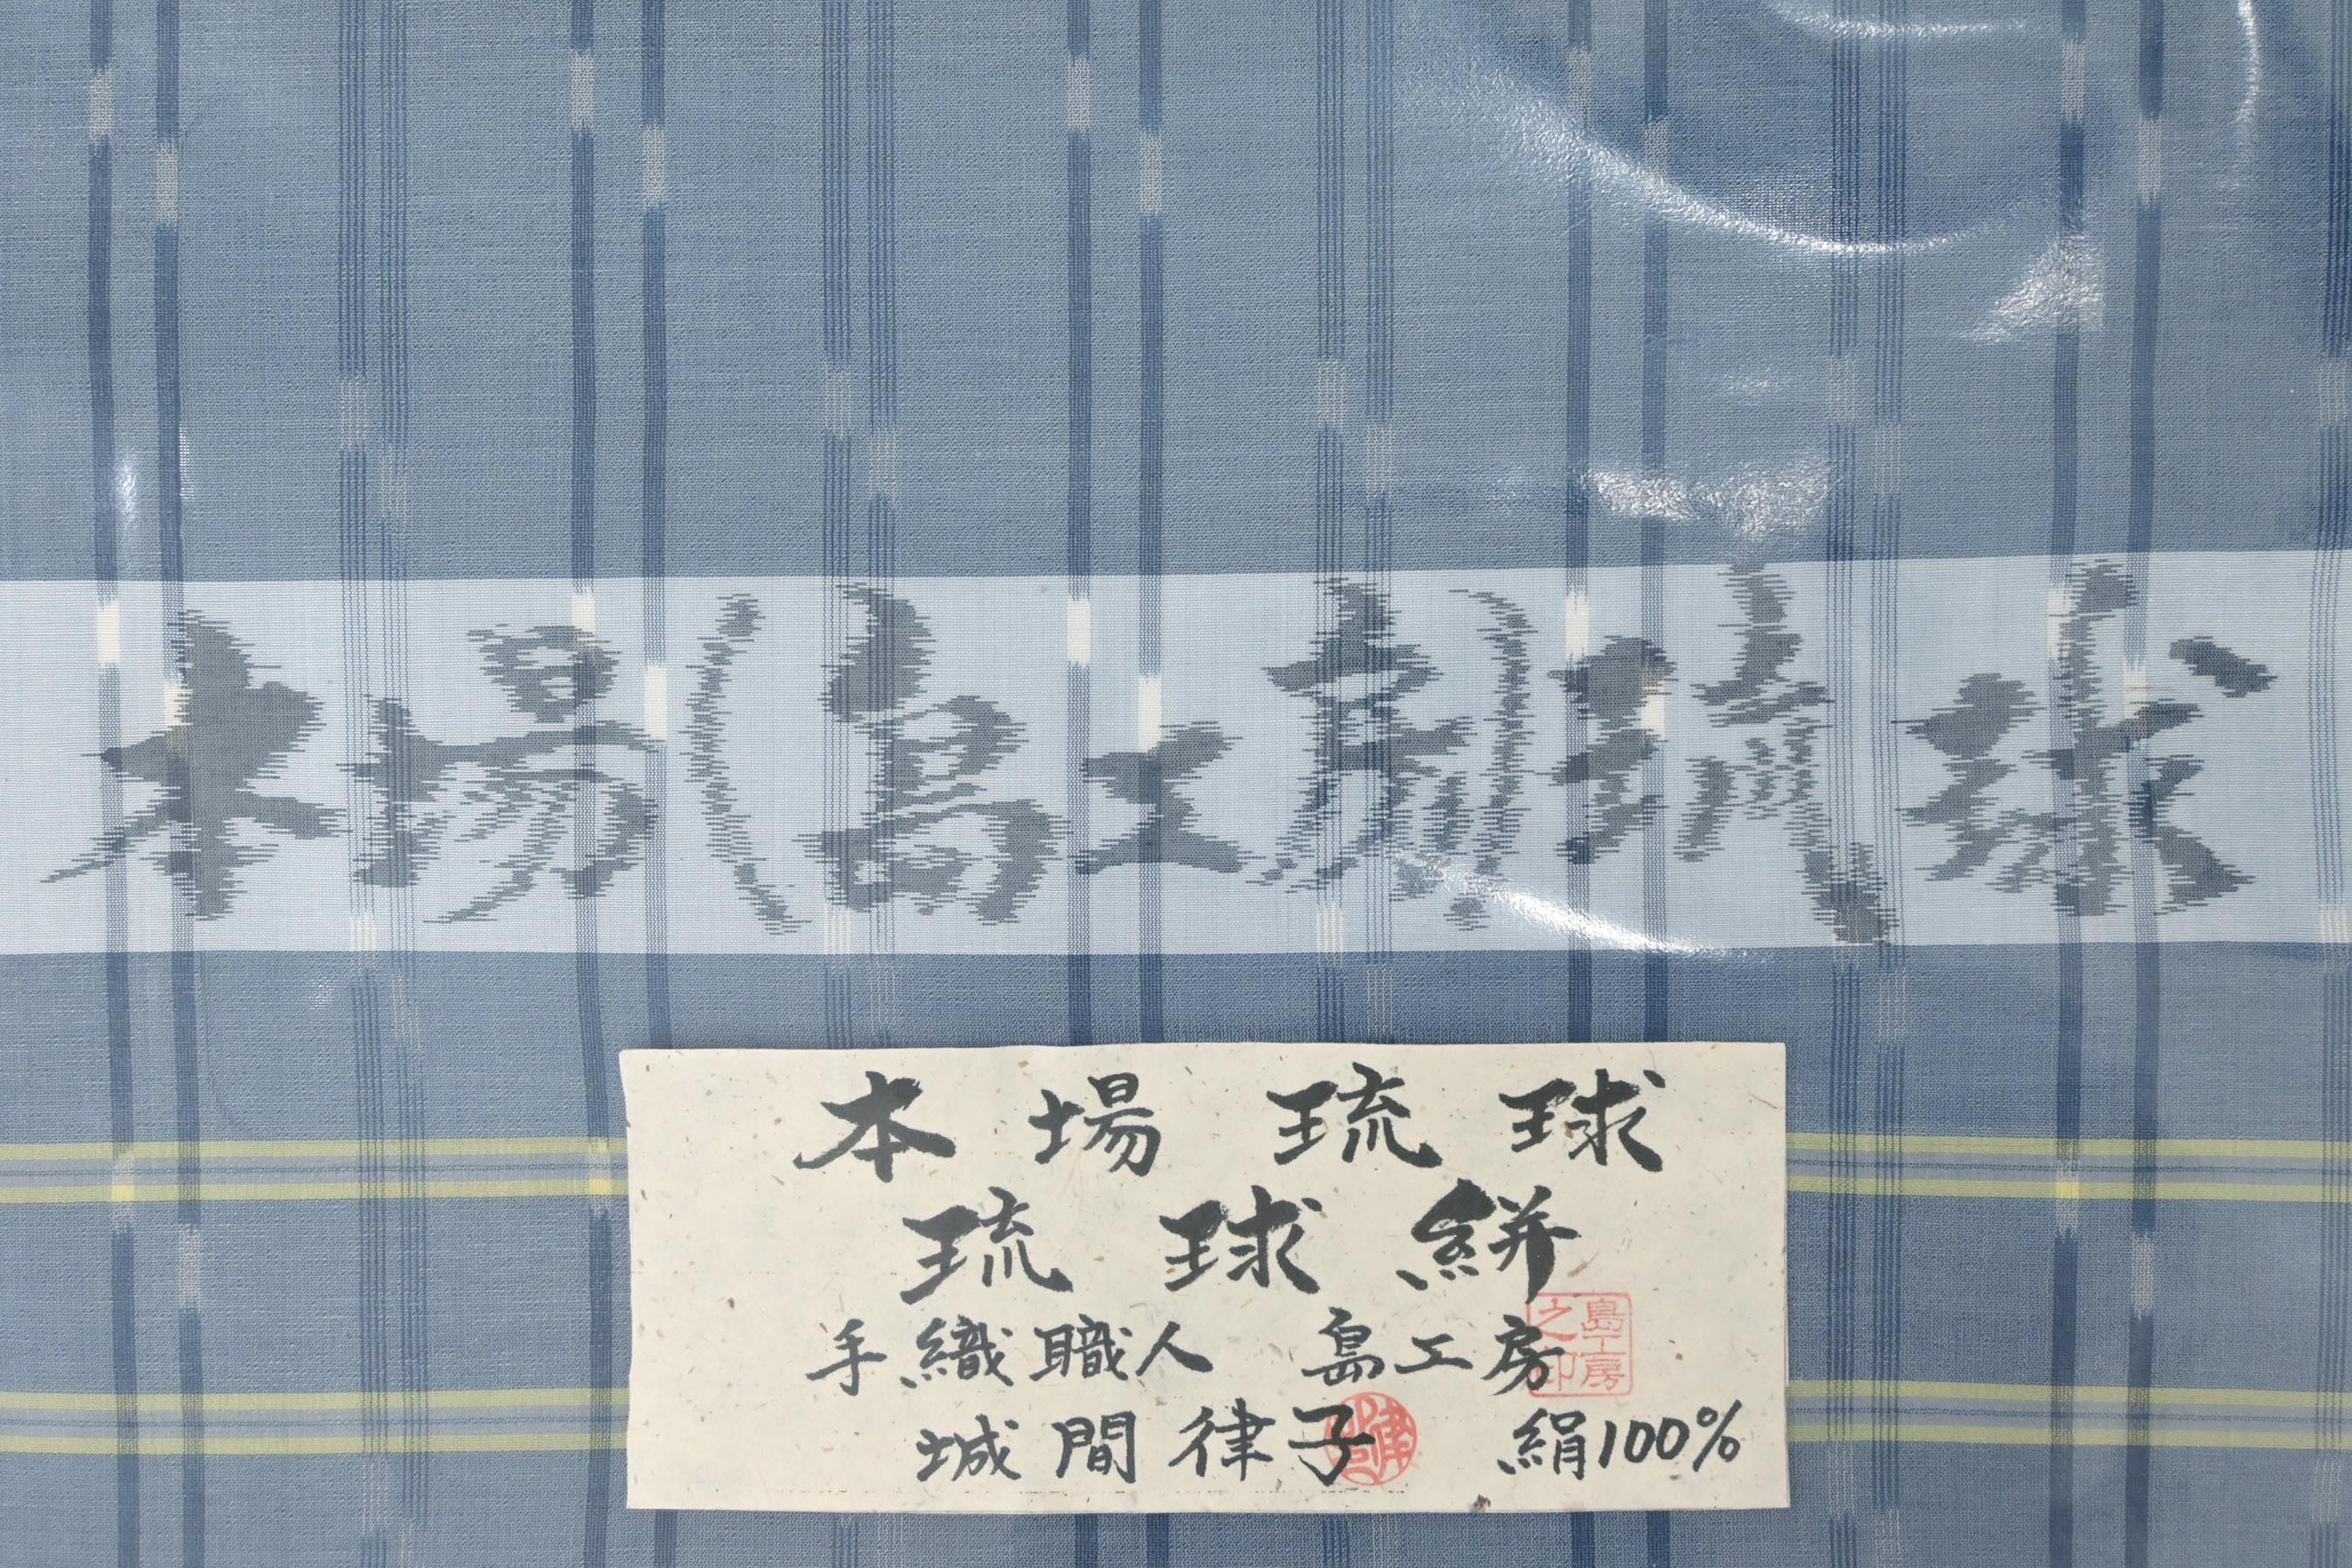 本場(島工房)琉球
本場琉球
琉球絣
手織職人 島工房
島工房之印
城間律子 絹100%